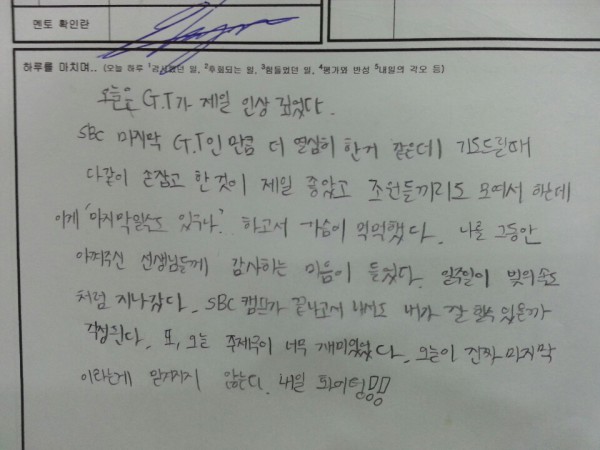 멘토 확인란
하루를 마치며.. (오늘 하루 ¹감사했던 일, ²후회되는 일, ³힘들었던 일, ⁴평가와 반성 ⁵내일의 각오 등)
오늘은 G.T가 제일 인상 깊었다.
SBC 마지막 G.T인 만큼 더 열심히 한거 같은데 기도드릴때
다같이 손잡고 한 것이 제일 좋았고 조원들끼리도 모여서 하는데
이게 '마지막일수도 있구나.' 하고서 가슴이 먹먹했다. 나를 그동안
아껴주신 선생님들께 감사하는 마음이 들었다. 일주일이 빛의속도
처럼 지나갔다. SBC 캠프가 끝나고서 내서도 내가 잘 할수 있을까
걱정된다. 또, 오늘 주제극이 너무 재미있었다. 오늘이 진짜 마지막
이라는게 믿겨지지 않는다. 내일 화이팅!!